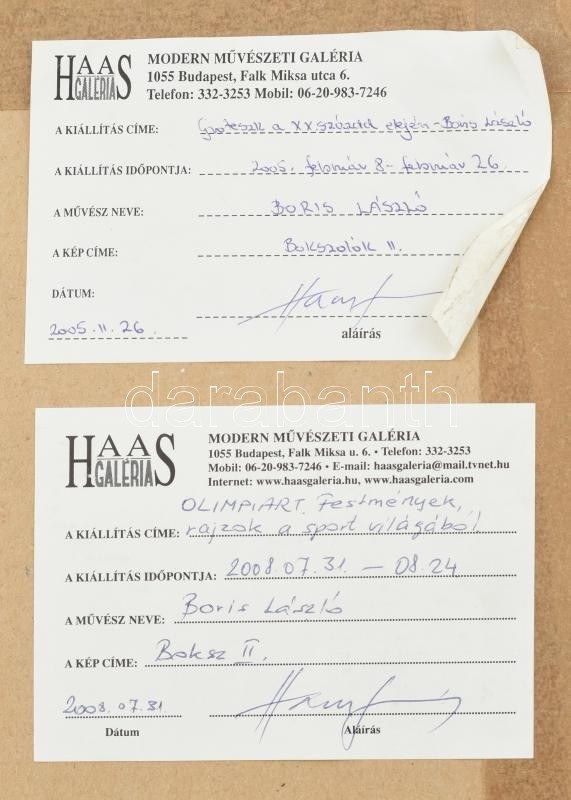 HAAS GALÉRIA
MODERN MŰVÉSZETI GALÉRIA
1055 Budapest, Falk Miksa utca 6.
Telefon: 332-3253 Mobil: 06-20-983-7246
A KIÁLLÍTÁS CÍME: Groteszk a XX század elején - Boris László
A KIÁLLÍTÁS IDŐPONTJA: 2005. február 8 - február 26.
A MŰVÉSZ NEVE: BORIS LÁSZLÓ
A KÉP CÍME: Bokszolók II.
DÁTUM:
2005.11.26.
aláírás
darabanth
HAAS GALÉRIA
MODERN MŰVÉSZETI GALÉRIA
1055 Budapest, Falk Miksa u. 6. • Telefon: 332-3253
Mobil: 06-20-983-7246 • E-mail: haasgaleria@mail.tvnet.hu
Internet: www.haasgaleria.hu, www.haasgaleria.com
OLIMPIART. Festmények,
A KIÁLLÍTÁS CÍME: rajzok a sport világából
A KIÁLLÍTÁS IDŐPONTJA: 2008.07.31. - 08.24
A MŰVÉSZ NEVE: Boris László
A KÉP CÍME: Boksz II.
2008.07.31.
Dátum Aláírás